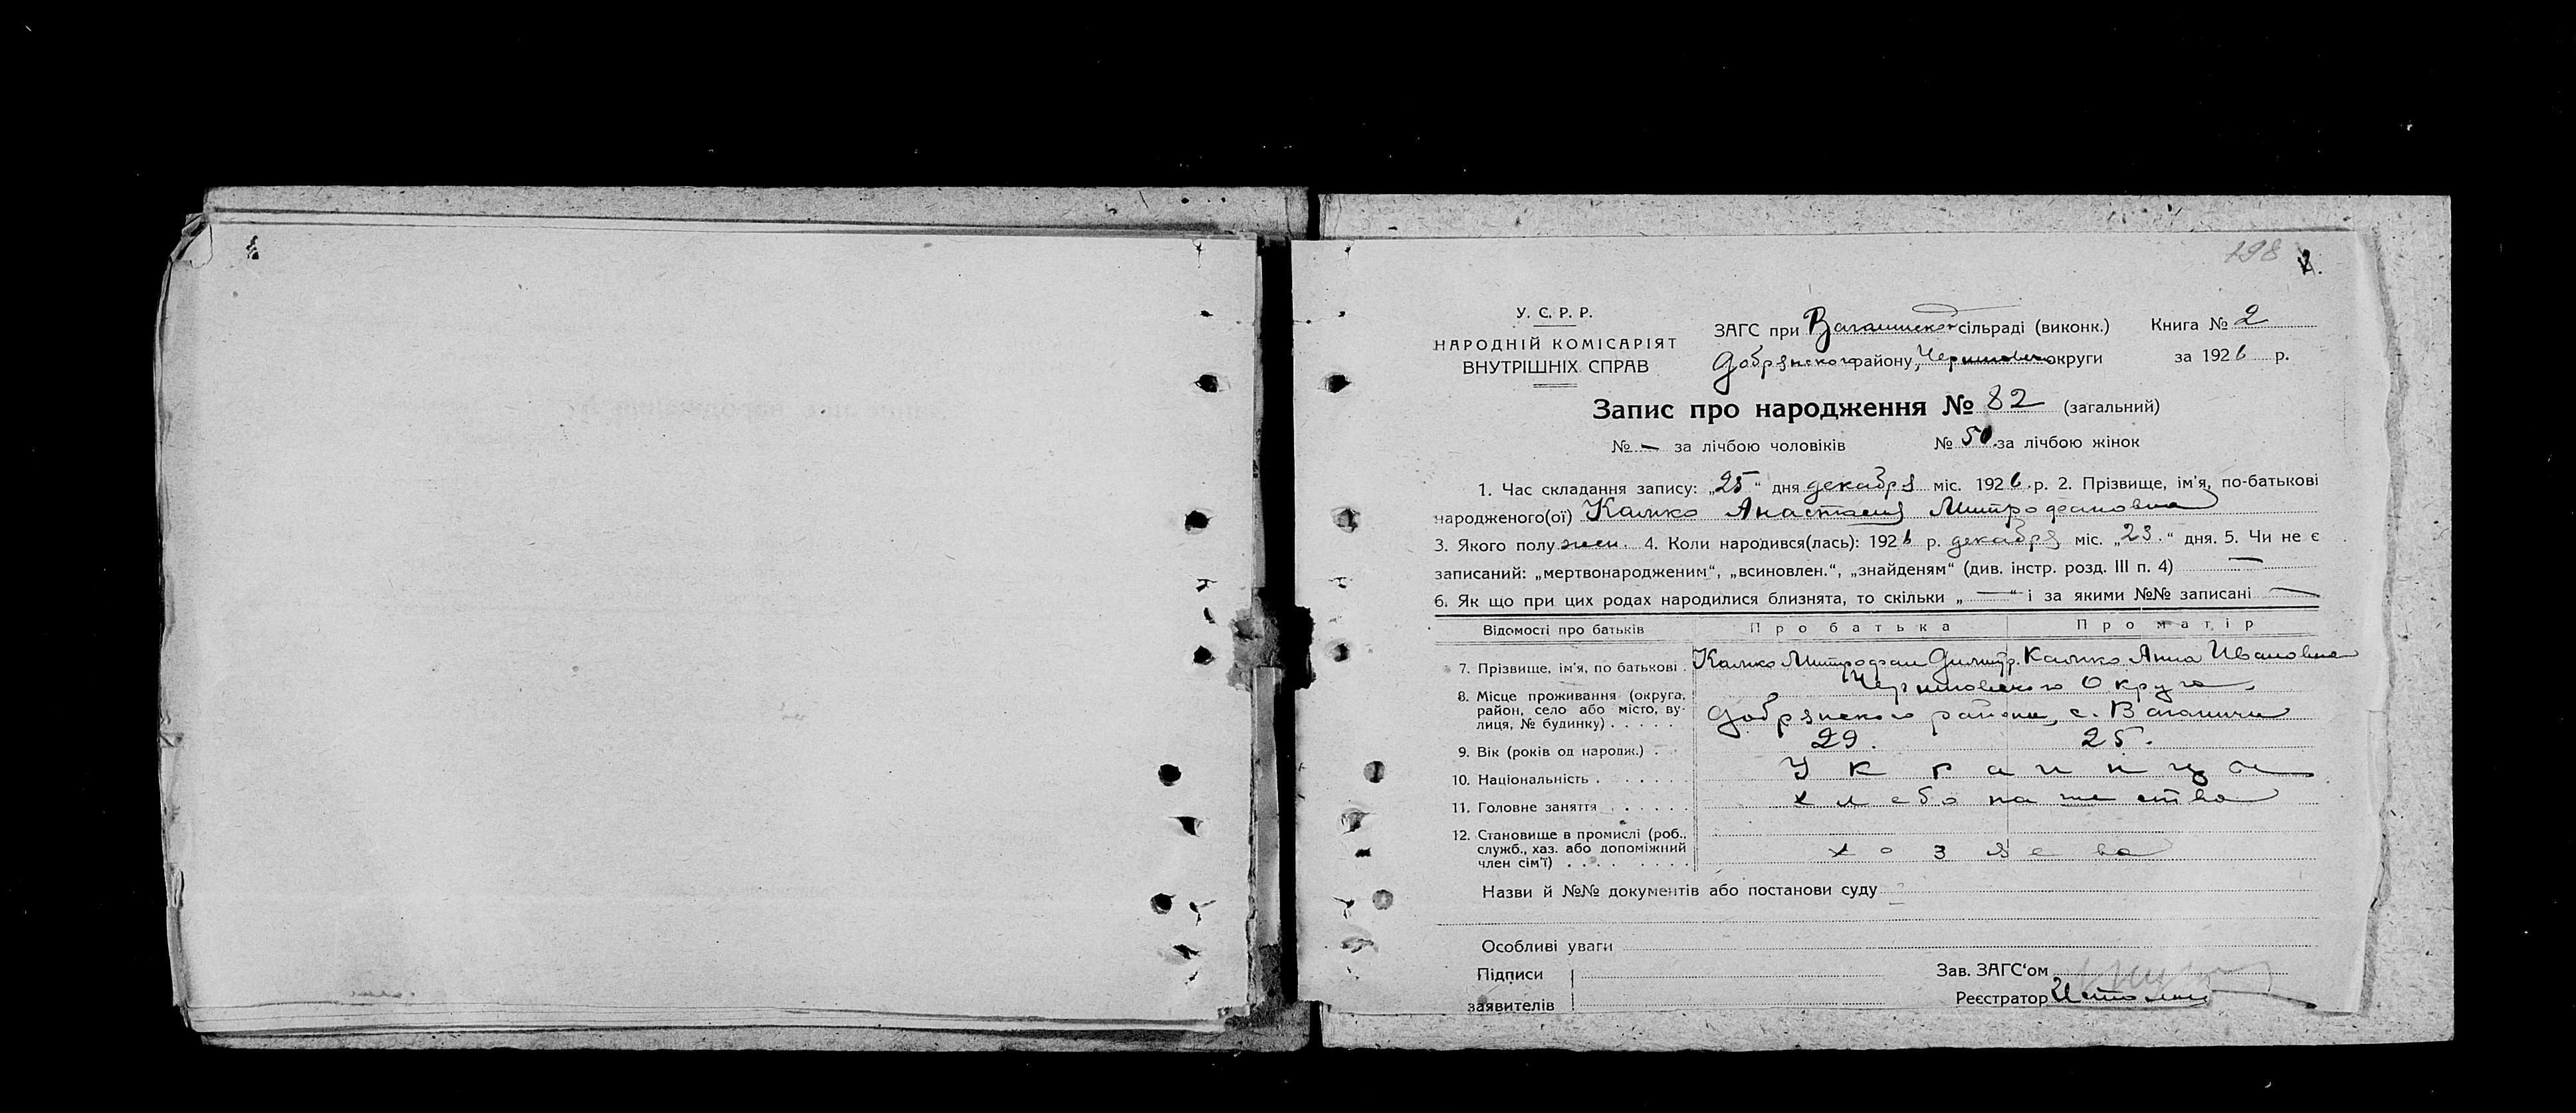 198
У. С. Р. Р.
НАРОДНІЙ КОМІСАРІЯТ
ВНУТРІШНІХ СПРАВ
ЗАГС при Ваганичской сільраді (виконк.) Книга № 2
Добрянского району, Черниговской округи за 1926 р.
Запис про народження № 82 (загальний)
№ — за лічбою чоловіків № 50 за лічбою жінок
1. Час складання запису: „25“ дня декабря міс. 1926 р. 2. Прізвище, ім'я, по-батькові
народженого(ої) Калико Анастасия Митрофановна
3. Якого полу жен. 4. Коли народився(лась): 1926 р. декабря міс. „23.“ дня. 5. Чи не є
записаний: „мертвонародженим“, „всиновлен.“, „знайденям“ (див. інстр. розд. III п. 4) —
6. Як що при цих родах народилися близнята, то скільки „—“ і за якими №№ записані —
Відомості про батьків Про батька Про матір
7. Прізвище, ім'я, по батькові . Калико Митрофан Димитр. Калико Анна Ивановна
8. Місце проживання (округа, район, село або місто, ву-
лиця, № будинку) . . . . . Черниговского Округа,
Добрянского района, с. Ваганичи
9. Вік (років од народж.) . . 29. 25.
10. Національність . . . . . . Украинца
11. Головне заняття . . . . . . хлебопашество
12. Становище в промислі (роб.,
служб., хаз. або допоміжний
член сім'ї) . . . . . . . . хозяева
Назви й №№ документів або постанови суду
Особливі уваги
Підписи
заявителів
Зав. ЗАГС'ом
Реєстратор